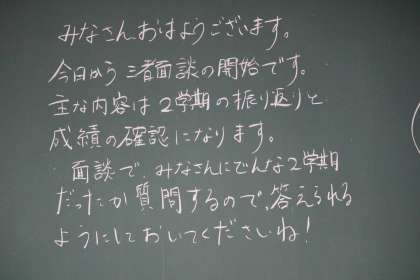 みなさんおはようございます。
今日から三者面談の開始です。
主な内容は2学期の振り返りと
成績の確認になります。
面談で、みなさんにどんな2学期
だったか質問するので、答えられる
ようにしておいてくださいね!